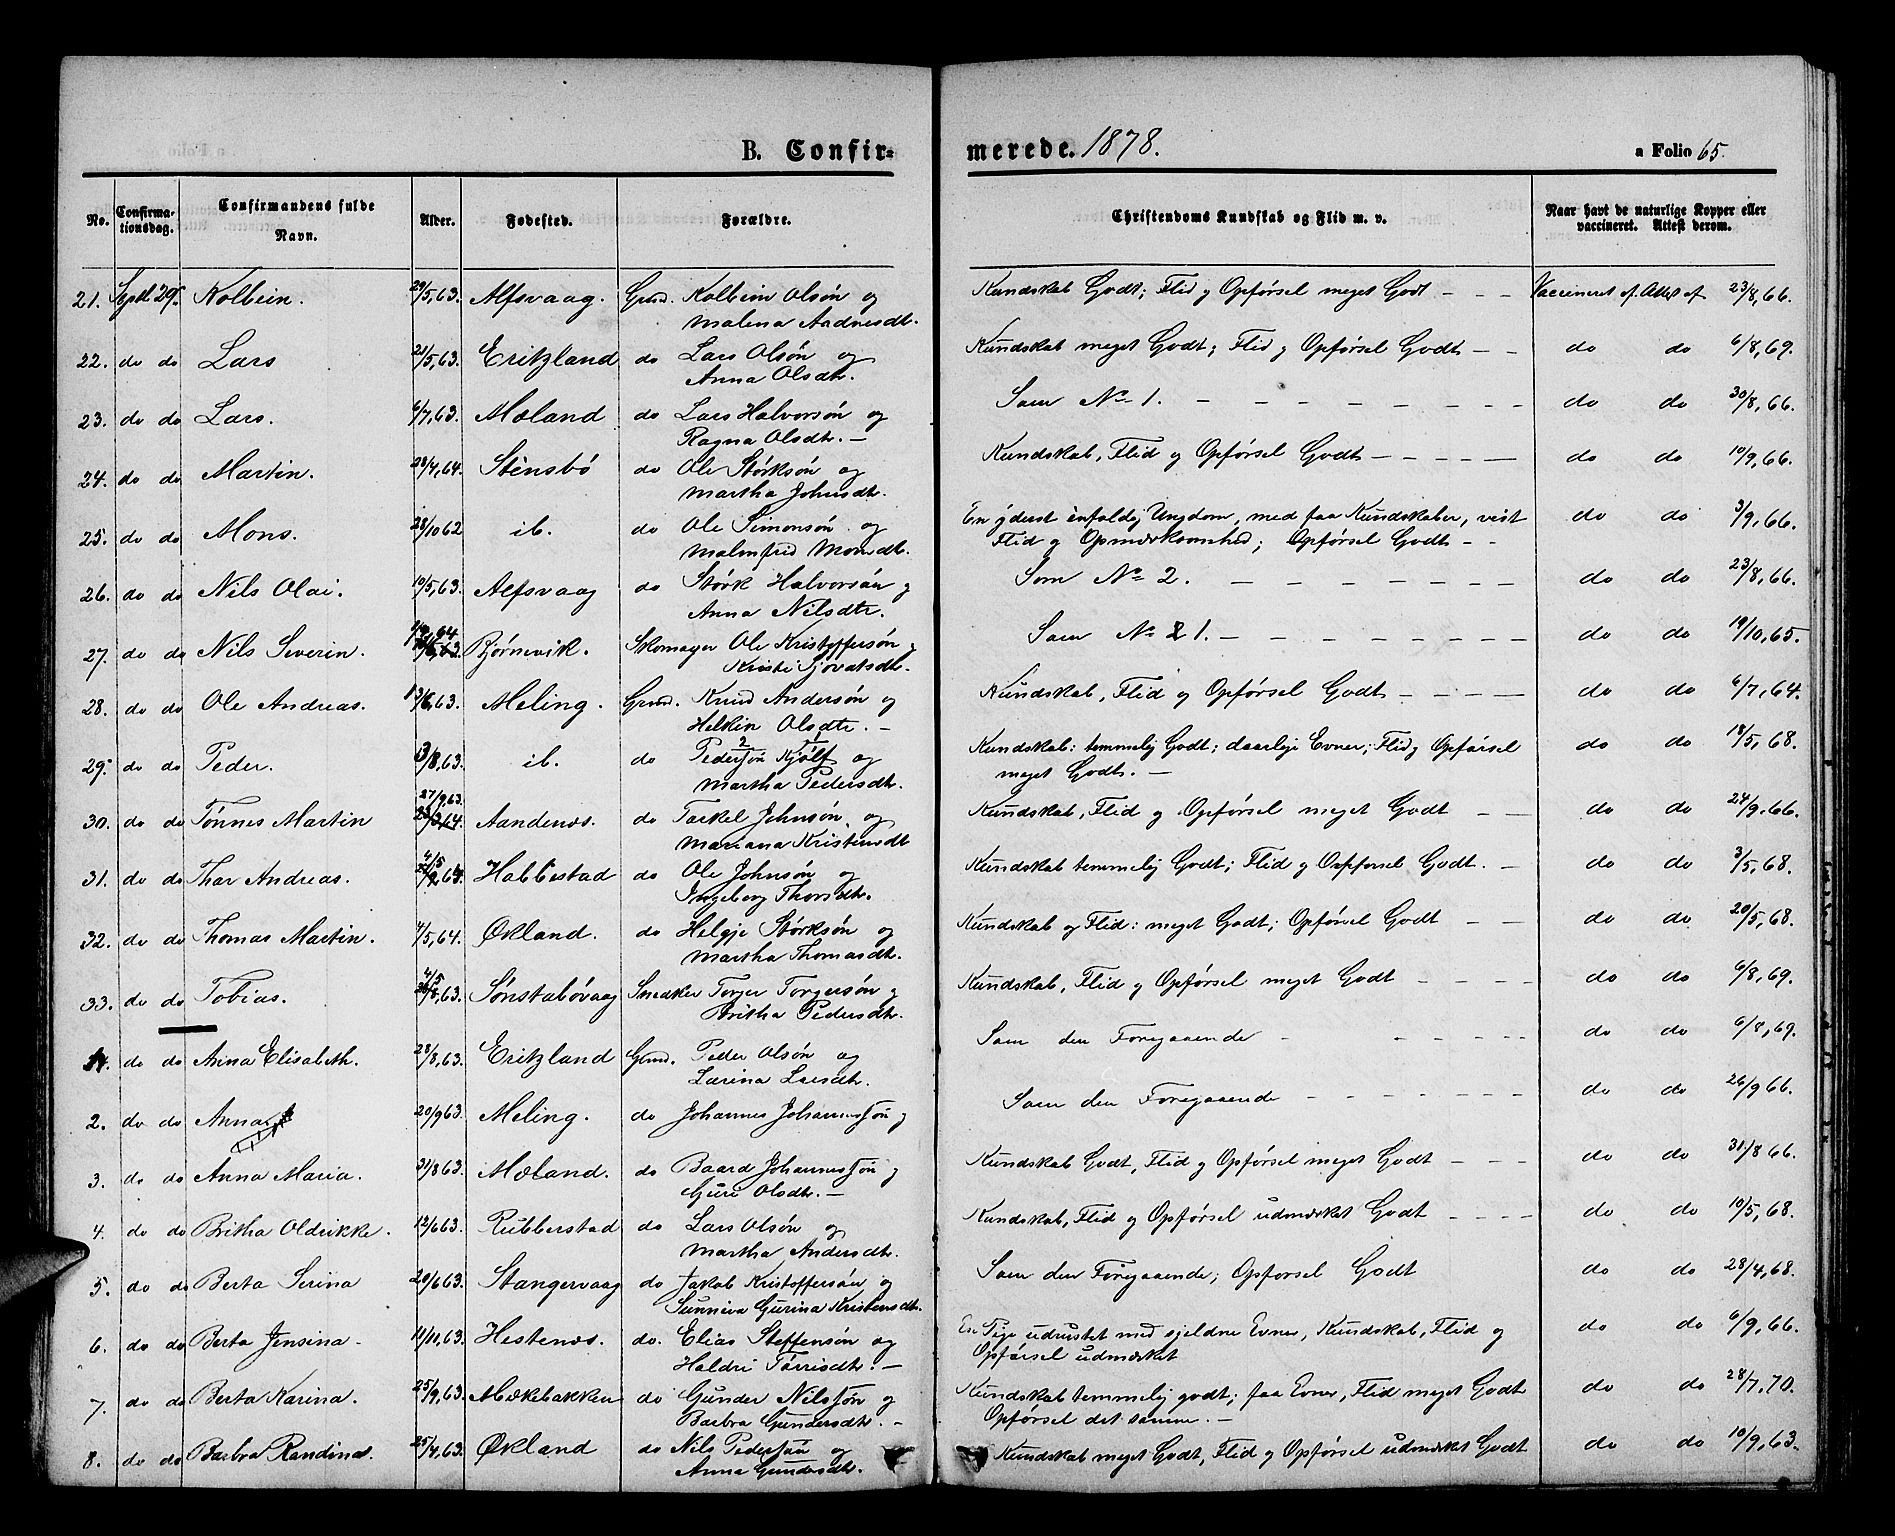 B. Confir-
merede. 1878.
a Folio 65.
No. Confirma-tionsdag. Confirmandens fulde Navn. Alder. Fødested. Forældre. Christendoms Kundskab og Flid m. v. Naar havt de naturlige Kopper eller vaccineret. Attest derom.
21. Septl 29. Kolbein. 29/5,63. Alfsvaag. Grmd. Kolbein Olsøn og Kundskab Godt; Flid og Opførsel meget Godt - - - Vaccineret Attest af 23/8,66.
Malena Aadnesdtr.
22. do do Lars 21/5,63. Eritzland do Lars Olsøn og Kundskab meget Godt; Flid og Opførsel Godt - - do do 6/8,69.
Anna Olsdtr.
23. do do Lars. 6/7,63. Mæland do Lars Halvorsøn og Som No 1. - - - - - - - do do 30/8,66.
Ragna Olsdtr. -
24. do do Martin. 28/4,64. Stensbø do Ole Størksøn og Kundskab, Flid og Opførsel Godt - - - - - do do 10/9,66.
Martha Johnsdtr.
25. do do Mons. 28/10 62 ib. do Ole Simonsøn og En yderst enfoldig Ungdom, med faa Kundskaber, vist do do 3/9,66.
Malmfred Monsdtr. Flid og Opmærksomhed; Opførsel Godt - -
26. do do Nils Olai. 10/5,63. Alfsvaag do Størk Halvorsøn og Som No 2. - - - - - - do do 23/8,66.
Anna Nilsdtr.
27. do do Nils Severin. Bjørnevik. Skomager Ole Kristoffersøn og Som No 21. - - - - - - do do 19/10,65.
Kristi Sjovatsdtr.
28. do do Ole Andreas. 13/8,63. Meling. Grmd. Knud Andersøn og Kundskab, Flid og Opførsel Godt - - - - do do 6/7,64.
Helkin Olsdtr. -
29. do do Peder. 3/8,63. ib. do Pedersøn Kjølf og Kundskab: temmelig Godt; daarlige Evner; Flid og Opførsel do do 18/5,68.
Martha Pedersdtr. meget Godt. -
30. do do Tønnes Martin 27/9,63. Aandenæs. do Torkel Johnsøn og Kundskab, Flid og Opførsel meget Godt - - do do 24/9.66.
Mariana Kristensdtr
31. do do Thor Andreas. Habbestad do Ole Johnsøn og Kundskab temmelig Godt; Flid og Opførsel Godt. - do do 3/5,68.
Ingeborg Thorsdtr.
32. do do Thomas Martin. 7/5,64. Økland. do Helgje Størksøn og Kundskab og Flid: meget Godt; Opførsel Godt - - do do 20/5,68.
Martha Thomasdtr.
33. do do Tobias. Sønstabøvaag Snedker Torger Torgersøn og Kundskab, Flid og Opførsel meget Godt - - - - do do 6/8,69.
Britha Pedersdtr.
1. do do Anna Elisabeth. 28/8,63. Eritzland Grmd. Peder Olsøn og Som den Foregaaende - - - - - do do 6/8,69.
Lærina Larsdtr.
2. do do Anna 20/9 63. Meling. do Johannes Johannessøn og Som den Foregaaende - - - - - - do do 26/9 66.
3. do do Anna Maria. 31/8 63. Mæland. do Baard Johannessøn og Kundskab Godt, Flid og Opførsel meget Godt - - - do do 31/8 66.
Guri Olsdtr. -
4. do do Britha Oldrikke. 12/6 63. Rubberstad do Lars Olsøn og Kundskab, Flid og Opførsel udmærket Godt - - - - do do 10/5,68.
Martha Andersdtr.
5. do do Berta Serina 20/6 63. Stangervaag do Jakob Kristoffersøn og Som den Foregaaende; Opførsel Godt do do 28/4,68.
Sunniva Gurina Kristensdtr.
6. do do Berta Jensina - 11/11,63. Hestenæs. do. Elias Steffensøn og En Pige udrustet med sjeldne Evner, Kundskab, Flid og do do 6/9,66.
Haldri Tørrisdtr. - Opførsel udmærket
7. do do Berta Karina. 25/9,63. Mækebakken do Gunder Nilssøn og Kundskab temmelig godt; faa Evner, Flid meget Godt do do 28/7,70.
Barbra Gundersdtr. - Opførsel det samme. -
8. do do Barbra Randina. 25/4,63. Økland do Nils Pedersøn og Kundskab meget Godt, Flid og Opførsel udmærket Godt do do 10/9,63.
Anna Gundersdtr.